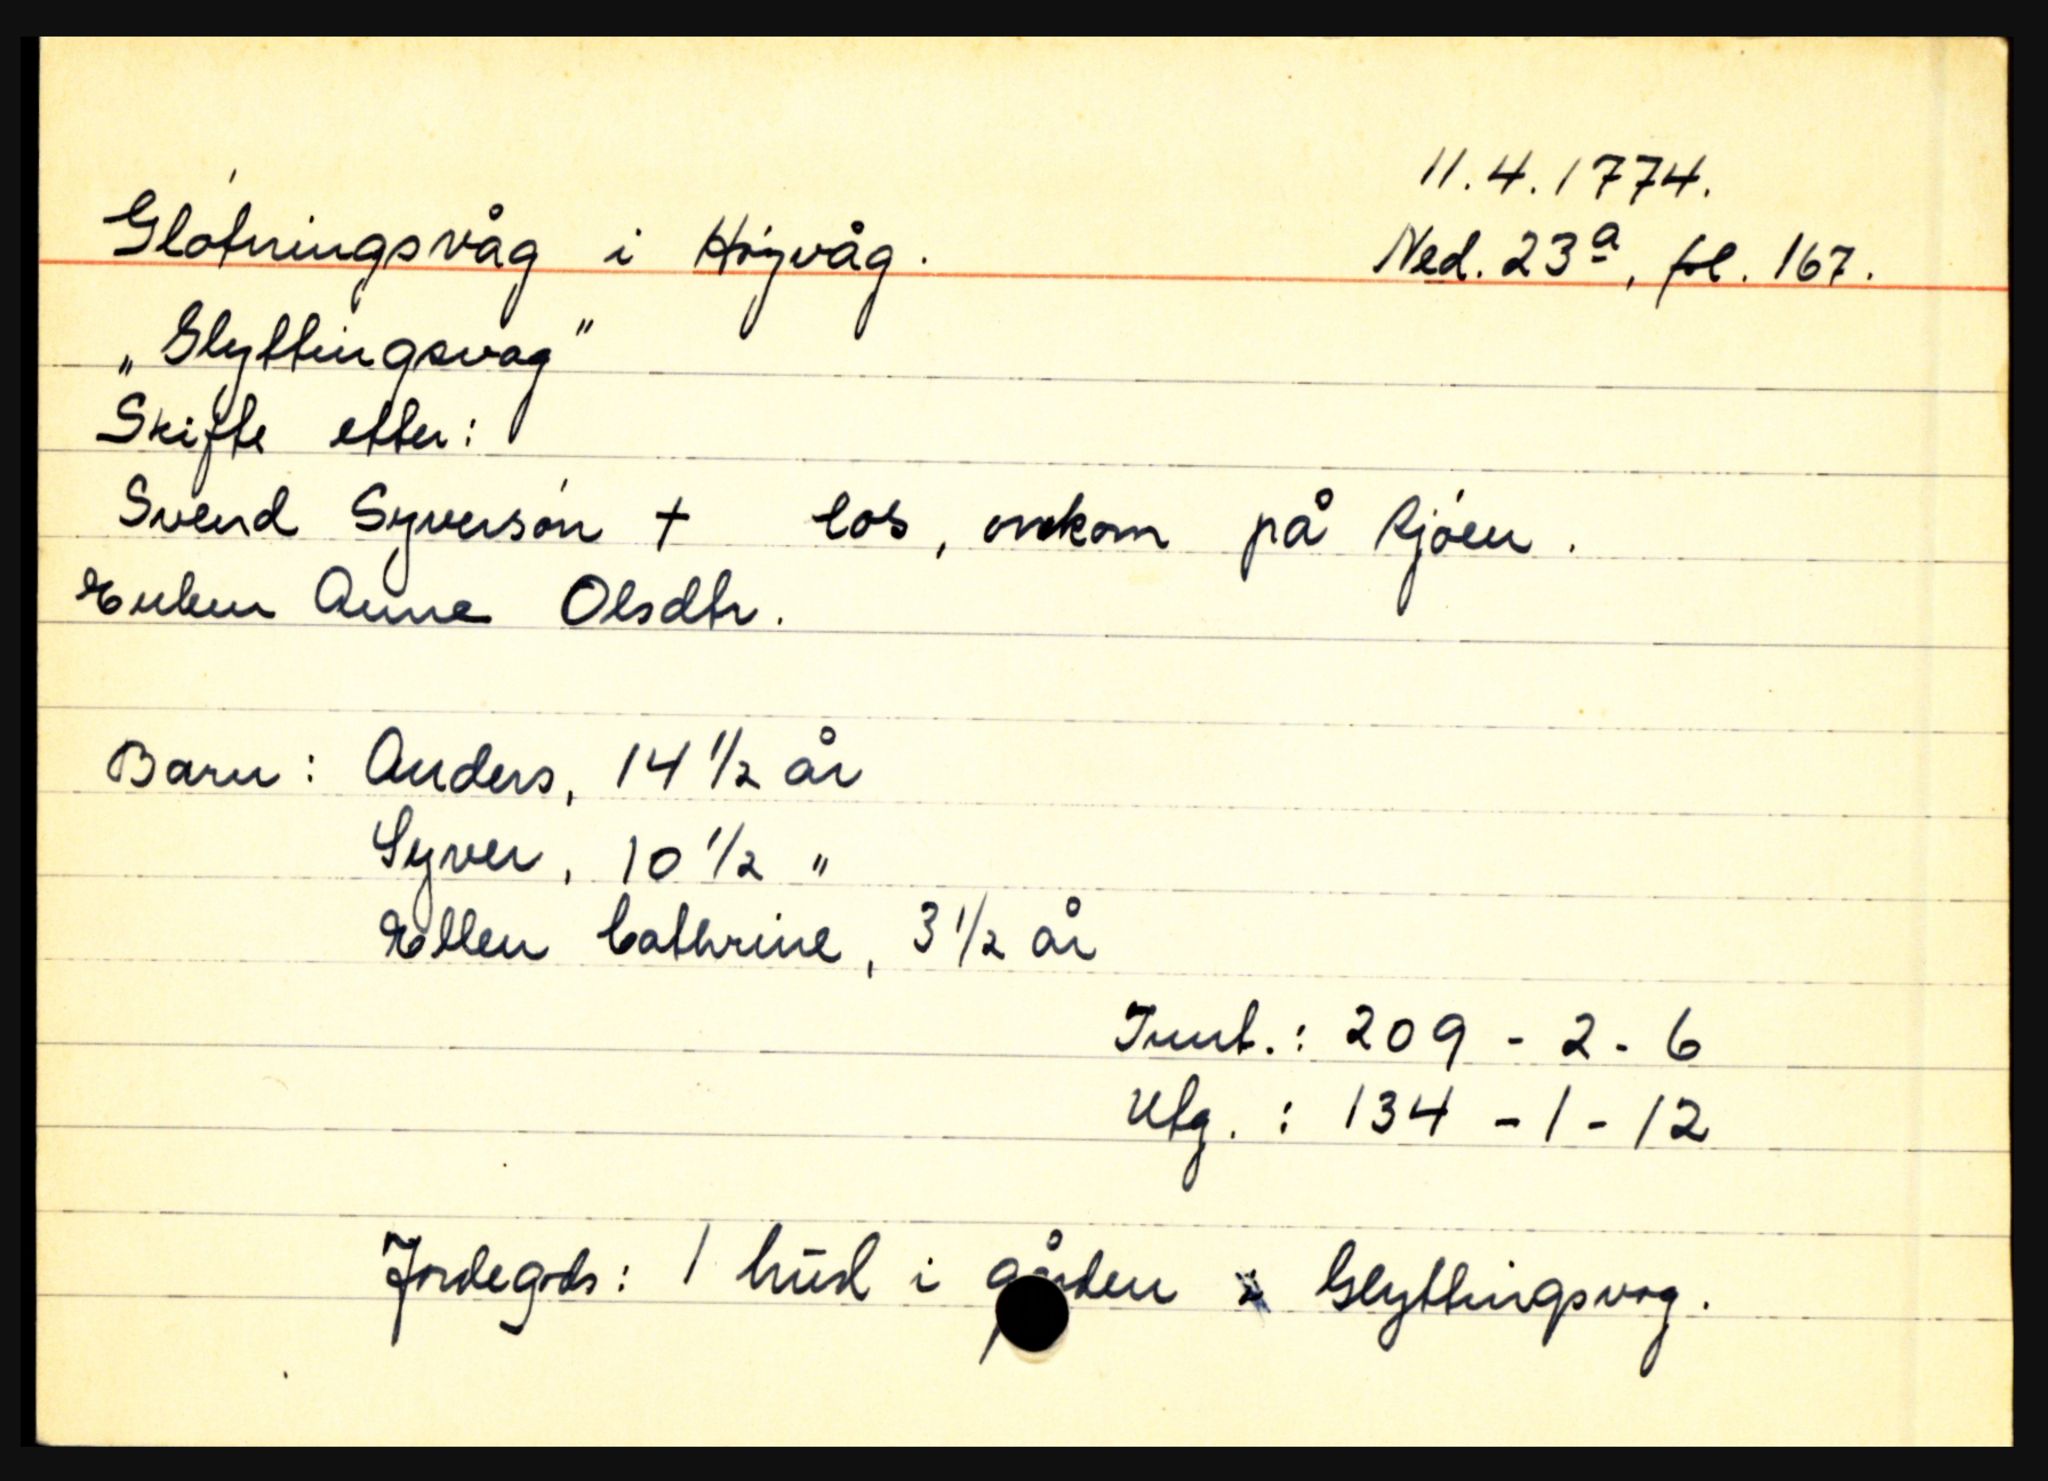 11.4.1774.
Gløtningsvåg i Høyvåg. Ned. 23a, fol. 167.
„Glyttingsvag"
Skifte etter:
Svend Syversøn † los, omkom på sjøen.
Enken Anne Olsdtr.
Barn: Anders, 14 1/2 år
Syver, 10 1/2 "
Ellen Cathrine, 3 1/2 år
Innt.: 209 - 2 - 6
Utg.: 134 - 1 - 12
Jordegods: 1 hud i gården Glyttingsvog.